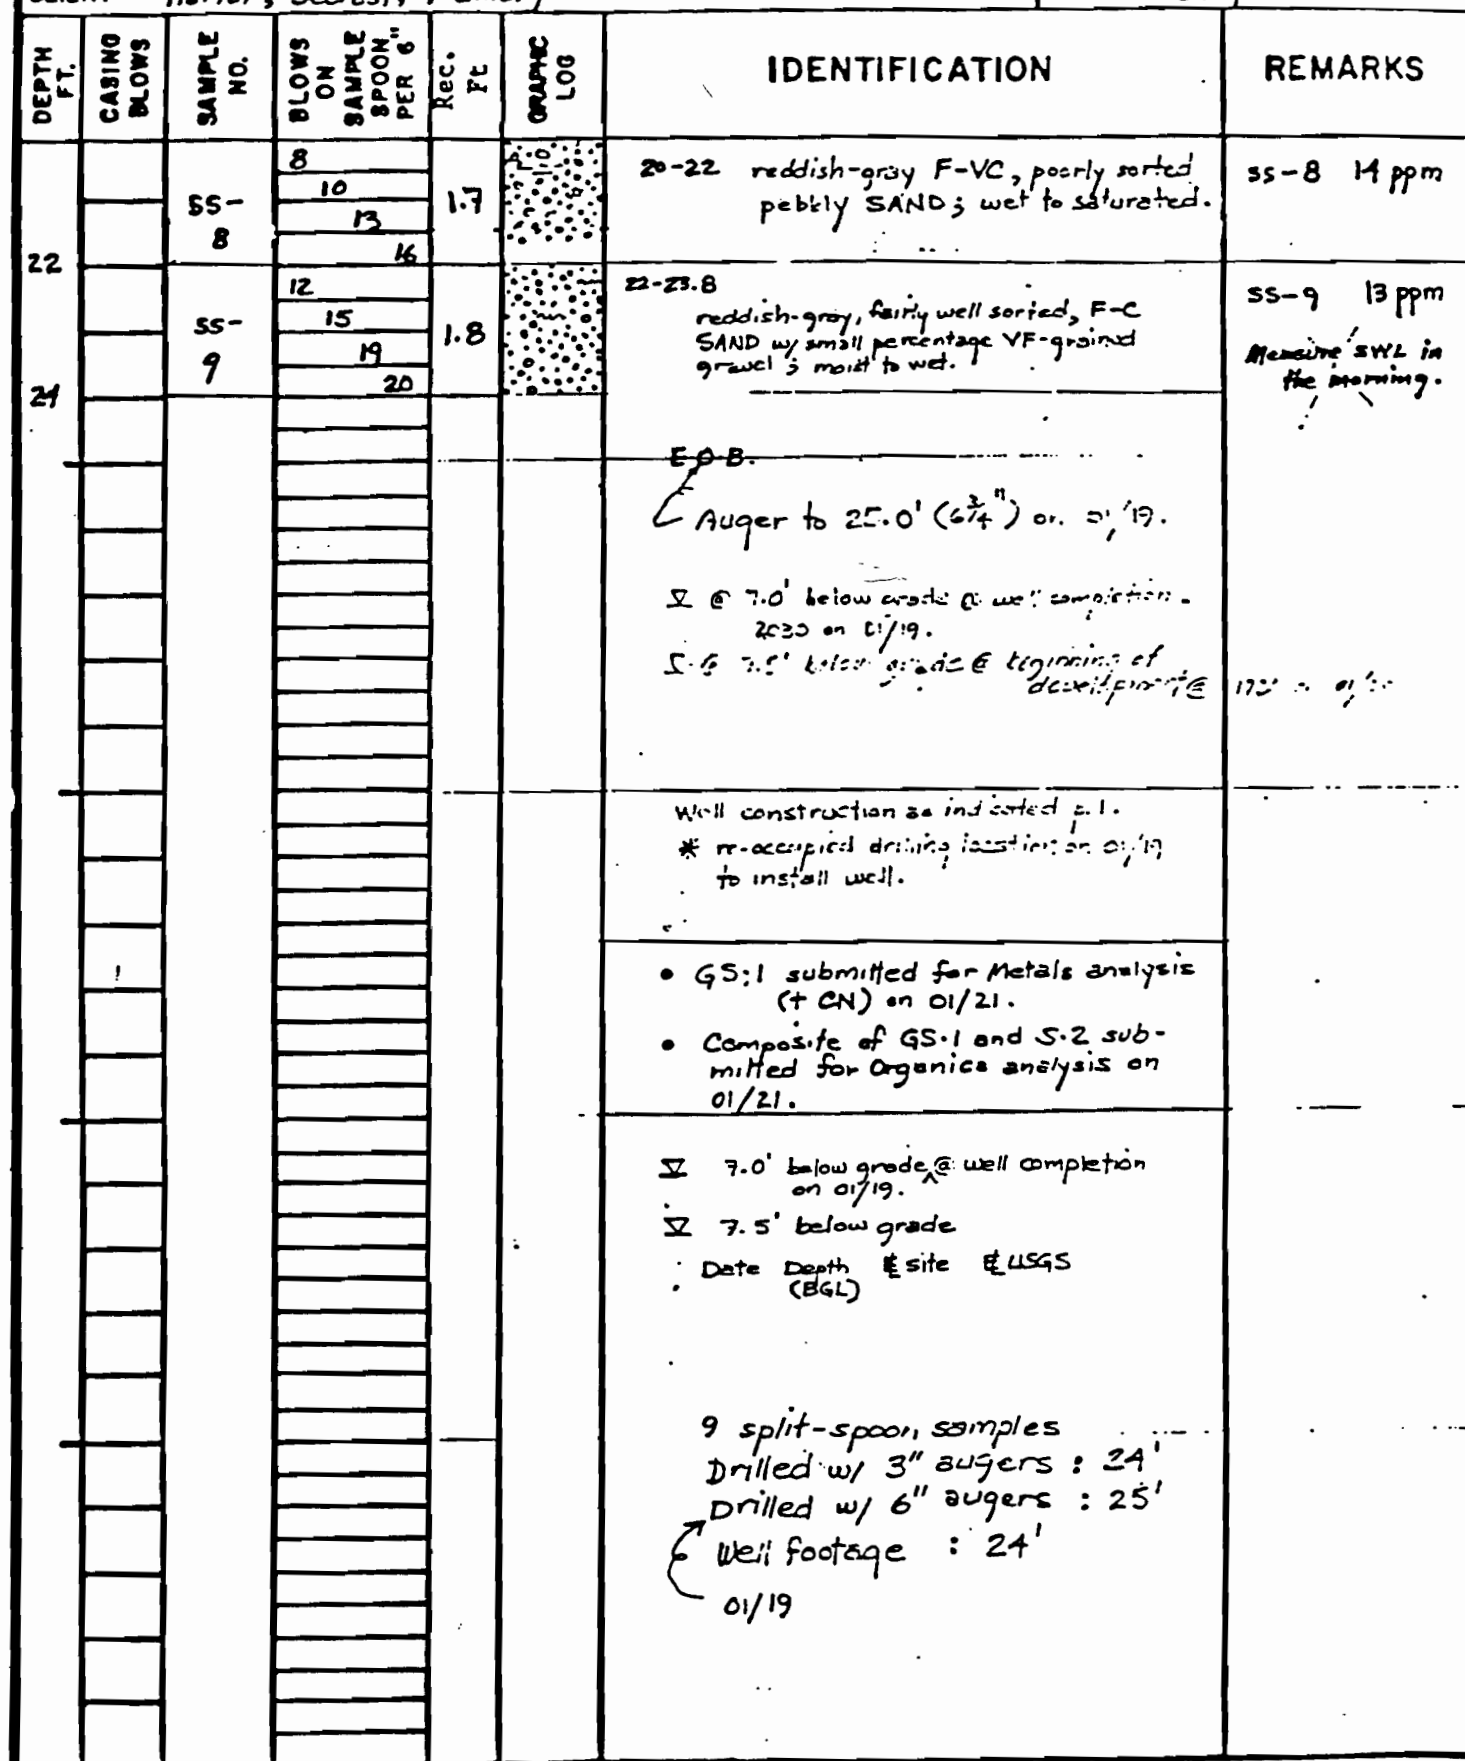 DEPTH FT.
CASING BLOWS
SAMPLE NO.
BLOWS ON SAMPLE SPOON PER 6"
Rec. Ft
GRAPHIC LOG
IDENTIFICATION
REMARKS
8
10
13
16
SS-
8
1.7
20-22 reddish-gray F-VC, poorly sorted
pebbly SAND; wet to saturated.
SS-8 14 ppm
22
12
15
19
20
SS-
9
1.8
22-23.8
reddish-gray, fairly well sorted, F-C
SAND w/ small percentage VF-grained
gravel; moist to wet.
SS-9 13 ppm
Measure SWL in
the morning.
24
E.O.B.
Auger to 25.0' (6 3/4") on 01/19.
@ 7.0' below grade @ well completion
on 01/19.
below grade @ beginning of
development @
Well construction as indicated p.1.
* re-occupied drilling location on 01/19
to install well.
• GS-1 submitted for Metals analysis
(+ CN) on 01/21.
• Composite of GS-1 and S-2 sub-
mitted for Organics analysis on
01/21.
7.0' below grade @ well completion
on 01/19.
7.5' below grade
Date Depth site USGS
(BGL)
9 split-spoon samples
Drilled w/ 3" augers : 24'
Drilled w/ 6" augers : 25'
Well footage : 24'
01/19